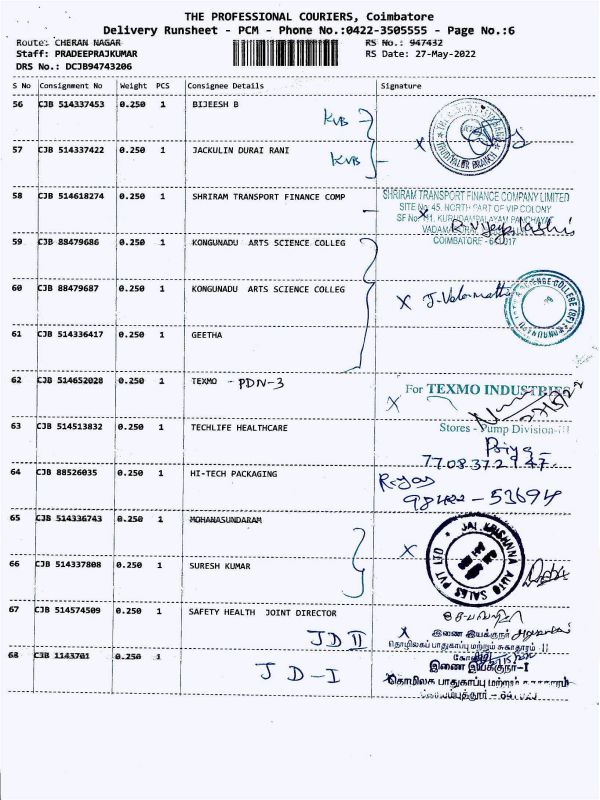 THE PROFESSIONAL COURIERS, Coimbatore
Delivery Runsheet - PCM - Phone No.:0422-3505555 - Page No.:6
Route: CHERAN NAGAR RS No.: 947432
Staff: PRADEEPRAJKUMAR RS Date: 27-May-2022
DRS No.: DCJB94743206
S No Consignment No Weight PCS Consignee Details Signature
56 CJB 514337453 0.250 1 BIJEESH B
KVB
57 CJB 514337422 0.250 1 JACKULIN DURAI RANI
KVB X
58 CJB 514618274 0.250 1 SHRIRAM TRANSPORT FINANCE COMP
SHRIRAM TRANSPORT FINANCE COMPANY LIMITED
SITE No 45, NORTH PART OF VIP COLONY
KURUDAMPALAYAM PANCHAYAT
COIMBATORE
59 CJB 88479686 0.250 1 KONGUNADU ARTS SCIENCE COLLEG
60 CJB 88479687 0.250 1 KONGUNADU ARTS SCIENCE COLLEG
X
61 CJB 514336417 0.250 1 GEETHA
62 CJB 514652028 0.250 1 TEXMO - PDN-3
For TEXMO INDUSTRIES
X
Stores - Pump Division-III
63 CJB 514513832 0.250 1 TECHLIFE HEALTHCARE
Priya
64 CJB 88526035 0.250 1 HI-TECH PACKAGING
65 CJB 514336743 0.250 1 MOHANASUNDARAM
X
JAI KRISHNA AUTO SALES PVT LTD
66 CJB 514337808 0.250 1 SURESH KUMAR
67 CJB 514574509 0.250 1 SAFETY HEALTH JOINT DIRECTOR
JD II X
இணை இயக்குநர்
68 CJB 1143701 0.250 1
JD-I
இணை இயக்குநர்-I